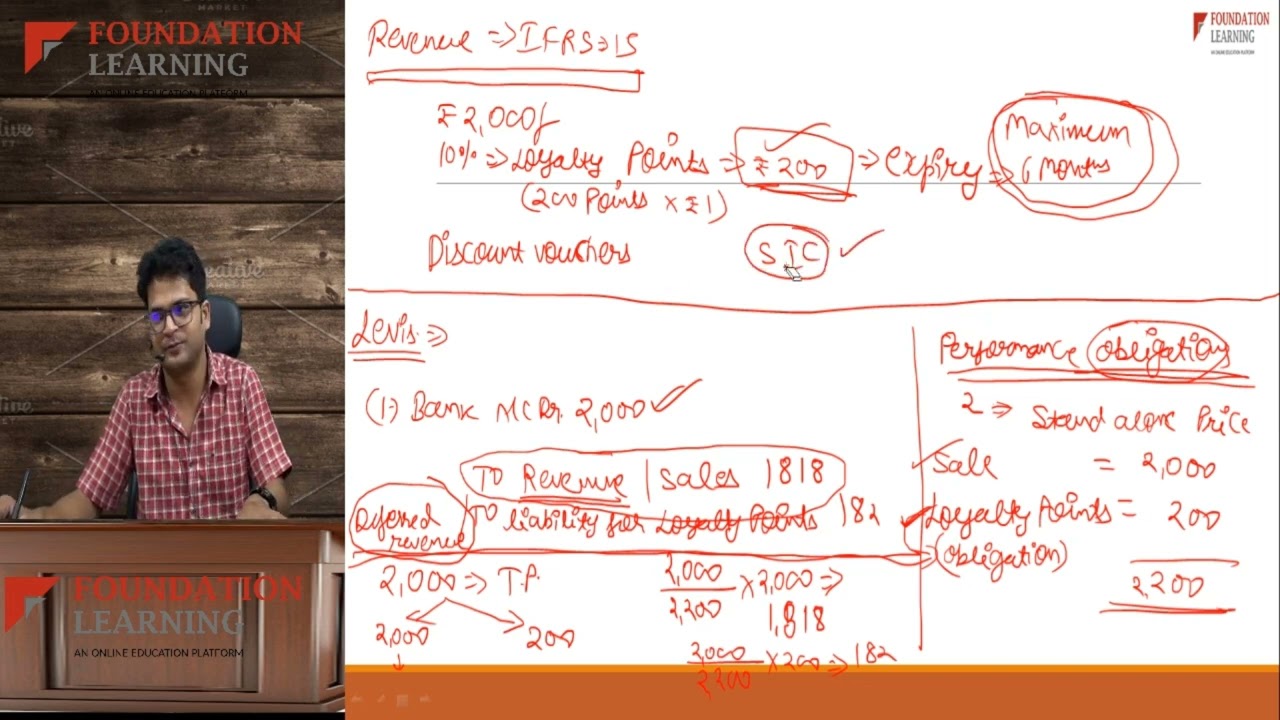 FOUNDATION
LEARNING
AN ONLINE EDUCATION PLATFORM
FOUNDATION
LEARNING
AN ONLINE EDUCATION PLATFORM
FOUNDATION
LEARNING
AN ONLINE EDUCATION PLATFORM
Revenue => IFRS => 15
₹2,000/
10% => Loyalty Points => ₹200 => Expiry => Maximum 6 Months
(200 Points x ₹1)
Discount vouchers SIC ✓
Levis =>
(1) Bank A/C Dr. 2,000 ✓
To Revenue | Sales 1818
Deferred revenue To liability for Loyalty Points 182
2,000 => T.P.
2,000 200
2,000/2,200 x 2,000 => 1,818
2,000/2,200 x 200 => 182
Performance Obligations
2 => Stand alone Price
Sale = 2,000
Loyalty Points = 200
(Obligation)
2,200